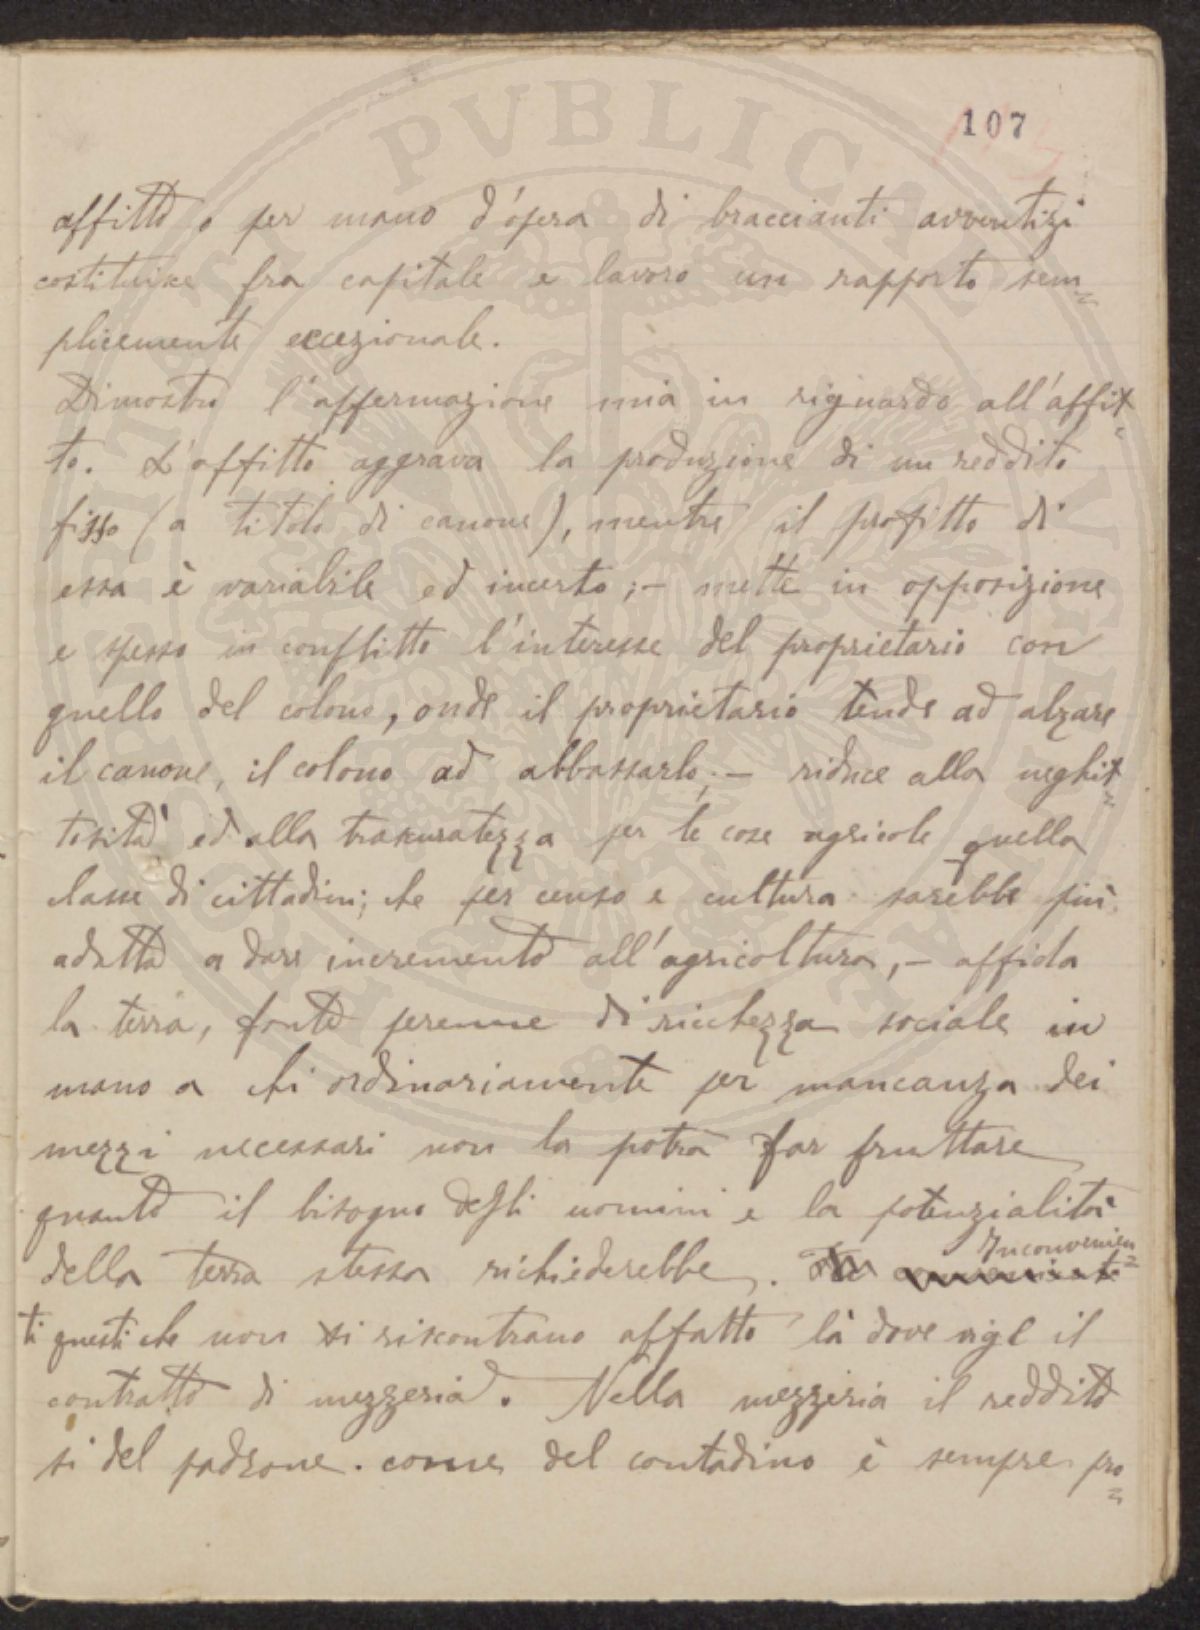 107
affitto o per mano d'opera di braccianti avventizi
costituisce fra capitale e lavoro un rapporto sem=
plicemente eccezionale.
Dimostro l'affermazione mia in riguardo all'affit=
to. L'affitto aggrava la produzione di un reddito
fisso (a titolo di canone), mentre il profitto di
essa è variabile ed incerto; – mette in opposizione
e spesso in conflitto l'interesse del proprietario con
quello del colono, onde il proprietario tende ad alzare
il canone, il colono ad abbassarlo; – riduce alla neghit=
tosità ed alla trascuratezza per le cose agricole quella
classe di cittadini; che per censo e cultura sarebbe più
adatta a dare incremento all'agricoltura, – affida
la terra, fonte perenne di ricchezza sociale in
mano a chi ordinariamente per mancanza dei
mezzi necessari non la potrà far fruttare
quanto il bisogno degli uomini e la potenzialità
della terra stessa richiederebbe. Inconvenien=
ti questi che non si riscontrano affatto là dove vige il
contratto di mezzeria. Nella mezzeria il reddito
sì del padrone come del contadino è sempre pro=